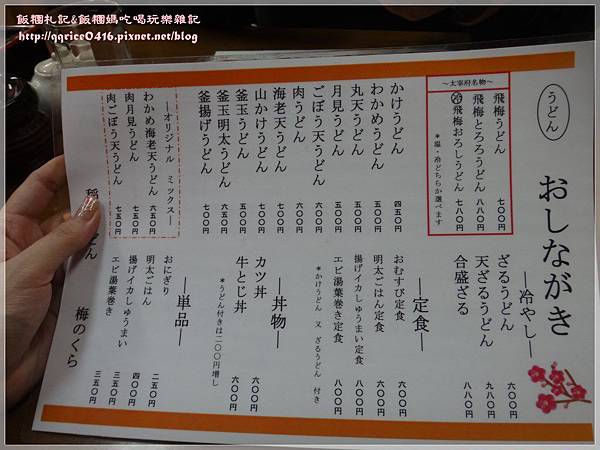 飯糰札記&飯糰媽吃喝玩樂雜記
http://qqrice0416.pixnet.net/blog
おしながき
うどん
～太宰府名物～
飛梅うどん 七〇〇円
飛梅とろろうどん 八八〇円
冷 飛梅おろしうどん 七八〇円
＊温・冷どちらか選べます
かけうどん 四五〇円
わかめうどん 五〇〇円
丸天うどん 五〇〇円
月見うどん 五〇〇円
ごぼう天うどん 六〇〇円
肉うどん 六〇〇円
海老天うどん 七〇〇円
山かけうどん 七〇〇円
釜玉うどん 五五〇円
釜玉明太うどん 六五〇円
釜揚げうどん 五〇〇円
―オリジナル ミックス―
わかめ海老天うどん 七五〇円
肉月見うどん 六五〇円
肉ごぼう天うどん 七五〇円
―冷やし―
ざるうどん 六〇〇円
天ざるうどん 九八〇円
合盛ざる 八八〇円
―定食―
おむすび定食 六〇〇円
明太ごはん定食 六〇〇円
揚げイカしゅうまい定食 八〇〇円
エビ湯葉巻き定食 八〇〇円
＊かけうどん 又 ざるうどん 付き
―丼物―
カツ丼 六〇〇円
牛とじ丼 六〇〇円
＊うどん付きは二〇〇円増し
―単品―
おにぎり 二五〇円
明太ごはん 四〇〇円
揚げイカしゅうまい 三五〇円
エビ湯葉巻き 三五〇円
どん 梅のくら